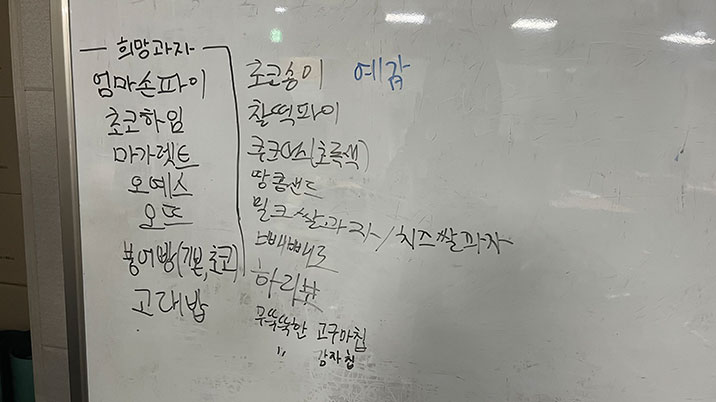 희망과자
엄마손파이
초코하임
마가렛트
오예스
오뜨
붕어빵(기본,초코)
고래밥
초코송이 예감
찰떡파이
쿠크다스(초록색)
땅콩샌드
밀크쌀과자/치즈쌀과자
빼빼로
하리보
무뚝뚝한 고구마칩
〃 감자칩